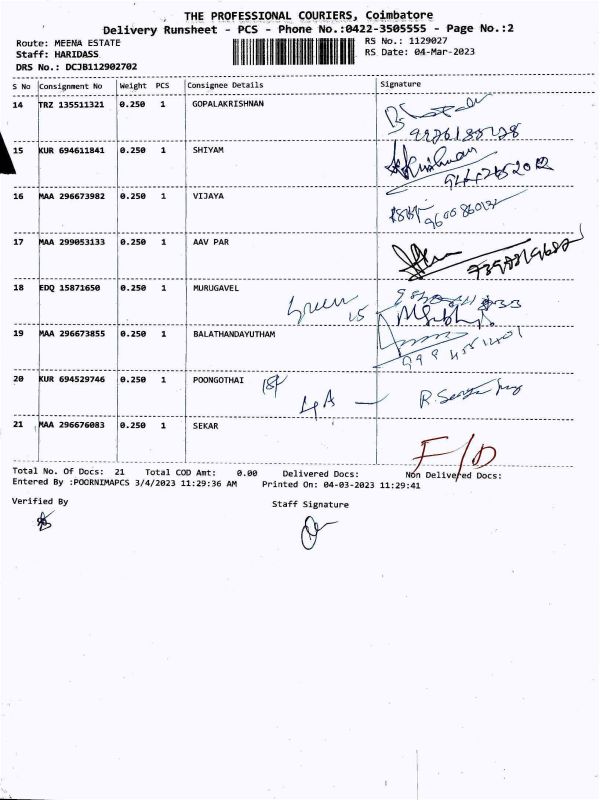 THE PROFESSIONAL COURIERS, Coimbatore
Delivery Runsheet - PCS - Phone No.:0422-3505555 - Page No.:2
Route: MEENA ESTATE
Staff: HARIDASS
DRS No.: DCJB112902702
RS No.: 1129027
RS Date: 04-Mar-2023
S No Consignment No Weight PCS Consignee Details Signature
14 TRZ 135511321 0.250 1 GOPALAKRISHNAN
15 KUR 694611841 0.250 1 SHIYAM
16 MAA 296673982 0.250 1 VIJAYA
17 MAA 299053133 0.250 1 AAV PAR
18 EDQ 15871650 0.250 1 MURUGAVEL
19 MAA 296673855 0.250 1 BALATHANDAYUTHAM
20 KUR 694529746 0.250 1 POONGOTHAI
21 MAA 296676083 0.250 1 SEKAR
F/D
Total No. Of Docs: 21 Total COD Amt: 0.00 Delivered Docs: Non Delivered Docs:
Entered By :POORNIMAPCS 3/4/2023 11:29:36 AM Printed On: 04-03-2023 11:29:41
Verified By
Staff Signature